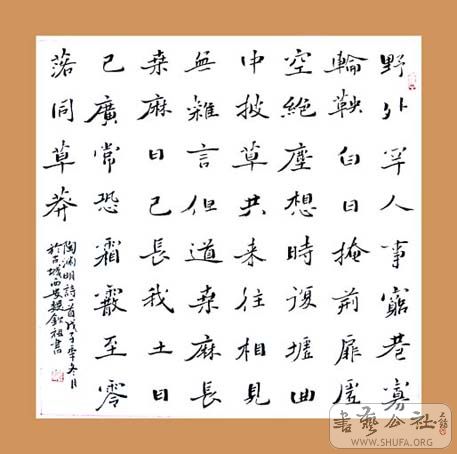 野外罕人事窮巷寡
輪鞅白日掩荊扉虛
空絕塵想時復墟曲
中披草共来往相見
無雜言但道桑麻長
桑麻日已長我土日
已廣常恐霜霰至零
落同草莽
陶淵明詩首戊子年冬月
於古城西安趙祖書
書藝公社
WWW.SHUFA.ORG